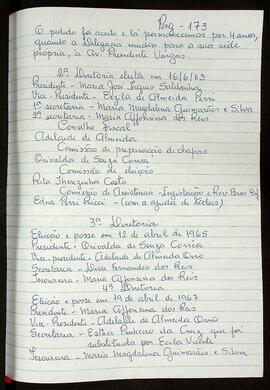 Pag - 173
O pedido foi aceito e lá permanecemos por 4 anos,
quando a Delegacia mudou para a sua séde
própria, à Av. Presidente Vargas.
2ª Diretoria eleita em 16/6/63
Presidente - Maria José Iniguez Saldanha
Vice-Presidente - Eczla de Almeida Perri
1ª secretaria - Maria Magdalena Guimarães e Silva
2ª secretaria - Maria Affonsina dos Reis
Conselho Fiscal
Adelaide de Almeida
Comissão de preparação de chapas
Orivalda de Souza Correa
Comissão de eleição
Rita Therezinha Costa
Comissão de Assistência - Legislação e Rev. Bras. Enf
Edna Perri Ricci - (com a ajuda de todas)
3ª Diretoria
Eleição e posse em 12 de abril de 1965
Presidente - Orivalda de Souza Corrêa
Vice-presidente - Adelaide de Almeida Orro
Secretaria - Dina Fernandes dos Reis
Tesoureira - Maria Affonsina dos Reis
4ª Diretoria
Eleição e posse em 19 de abril de 1967
Presidente - Maria Affonsina dos Reis
Vice-Presidente - Adelaide de Almeida Orro
Secretaria - Esther Pinheiro da Cruz que foi
substituida por Ecila Vicente
Tesoureira - Maria Magdalena Guimarães e Silva